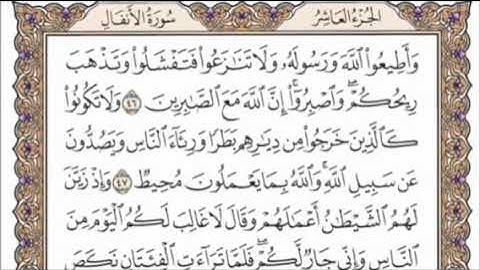 الجُزْءُ العَاشِرُ سُورَةُ الأَنفَالِ
وَأَطِيعُوا۟ ٱللَّهَ وَرَسُولَهُۥ وَلَا تَنَـٰزَعُوا۟ فَتَفْشَلُوا۟ وَتَذْهَبَ
رِيحُكُمْ ۖ وَٱصْبِرُوٓا۟ ۚ إِنَّ ٱللَّهَ مَعَ ٱلصَّـٰبِرِينَ ٤٦ وَلَا تَكُونُوا۟
كَٱلَّذِينَ خَرَجُوا۟ مِن دِيَـٰرِهِم بَطَرًا وَرِئَآءَ ٱلنَّاسِ وَيَصُدُّونَ
عَن سَبِيلِ ٱللَّهِ ۚ وَٱللَّهُ بِمَا يَعْمَلُونَ مُحِيطٌ ٤٧ وَإِذْ زَيَّنَ
لَهُمُ ٱلشَّيْطَـٰنُ أَعْمَـٰلَهُمْ وَقَالَ لَا غَالِبَ لَكُمُ ٱلْيَوْمَ مِنَ
ٱلنَّاسِ وَإِنِّى جَارٌ لَّكُمْ ۖ فَلَمَّا تَرَآءَتِ ٱلْفِئَتَانِ نَكَصَ